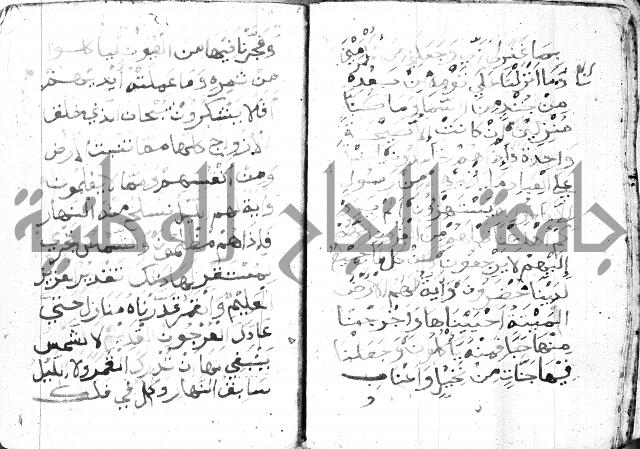 بما غفر لي ربي وجعلني من
وما أنزلنا على قومه من بعده
من جند من السماء وما كنا
منزلين إن كانت إلا صيحة
واحدة فإذا هم خامدون
على العباد ما من رسول
يستهزؤن
كم أهلكنا قبلهم من
إليهم لا يرجعون وإن كل لما جميع
لدينا محضرون وآية لهم الأرض
الميتة أحييناها وأخرجنا
منها حبا فمنه يأكلون وجعلنا
فيها جنات من نخيل وأعناب
وفجرنا فيها من العيون ليأكلوا
من ثمره وما عملته أيديهم
أفلا يشكرون سبحان الذي خلق
الأزواج كلها مما تنبت الأرض
ومن أنفسهم ومما لا يعلمون
وآية لهم الليل نسلخ منه النهار
فإذا هم مظلمون والشمس تجري
لمستقر لها ذلك تقدير العزيز
العليم والقمر قدرناه منازل حتى
عاد كالعرجون القديم لا الشمس
ينبغي لها أن تدرك القمر ولا الليل
سابق النهار وكل في فلك
جامعة النجاح الوطنية